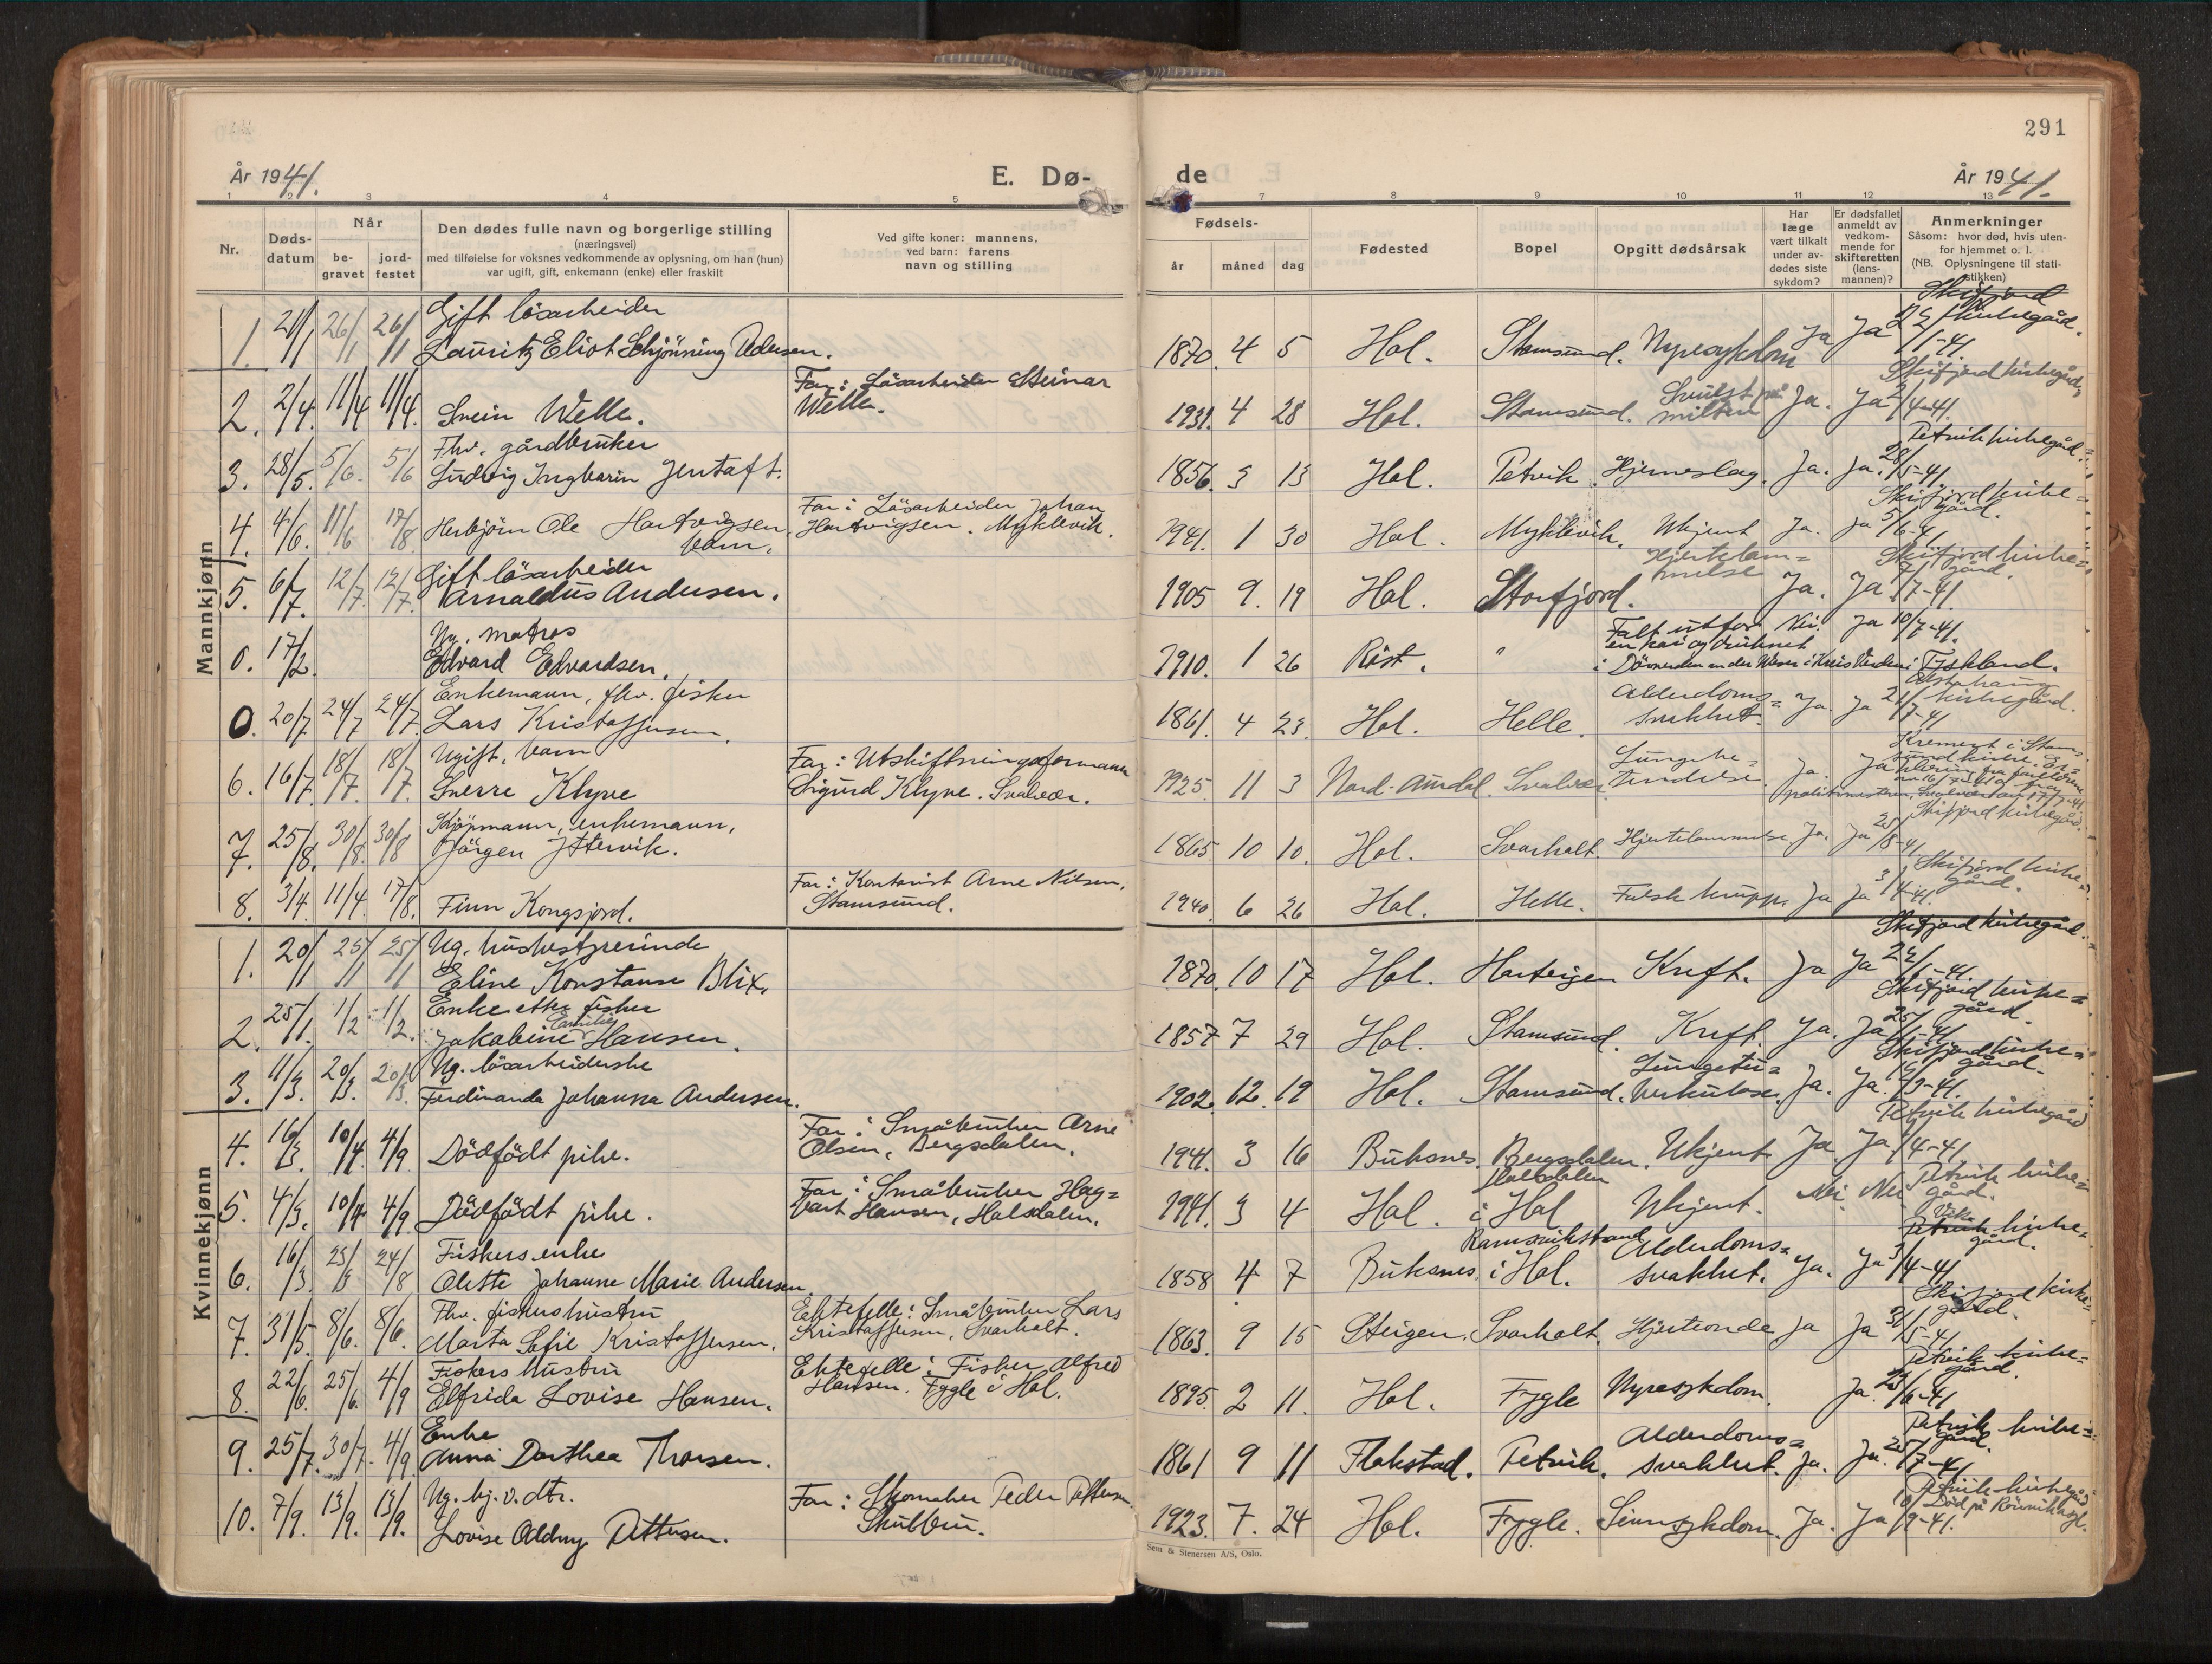 291
År 1941.
E. Dø-
de
År 1941.
1 2 3 4 5 7 8 9 10 11 12 13
Nr.
Døds-
datum
Når
be-
gravet
jord-
festet
Den dødes fulle navn og borgerlige stilling
(næringsvei)
med tilføielse for voksnes vedkommende av oplysning, om han (hun)
var ugift, gift, enkemann (enke) eller fraskilt
Ved gifte koner: mannens,
ved barn: farens
navn og stilling
Fødsels-
år måned dag
Fødested
Bopel
Opgitt dødsårsak
Har
læge
vært tilkalt
under av-
dødes siste
sykdom?
Er dødsfallet
anmeldt av
vedkom-
mende for
skifteretten
(lens-
mannen)?
Anmerkninger
Såsom: hvor død, hvis uten-
for hjemmet o. l.
(NB. Oplysningene til stati-
stikken)
Mannkjønn
Gift løsarbeider
1. 21/1 26/1 26/1 Lauritz Eliot Schjönning Adersen. 1870. 4 5 Hol. Stamsund. Nyresykdom Ja Ja 22/1-41. kirkegård.
2. 2/4. 11/4 11/4. Svein Welle. Far: Løsarbeider Steinar
Welle. 1931. 4 28 Hol. Stamsund. Svulst på
milten Ja. Ja 2/4-41. Skifjord kirkegård
Fhv. gårdbruker
3. 28/5. 5/6. 5/6 Ludvig Ingbarin Jentoft. 1856. 3 13 Hol. Petvik. Hjerneslag. Ja. Ja. 28/5-41. Petvik kirkegård.
4. 4/6. 11/6 17/8 Herbjörn Ole Hartvigsen,
barn. Far: Løsarbeider Johan
Hartvigsen. Myklevik. 1941. 1 30 Hol. Myklevik. Ukjent Ja. Ja 5/6-41 Skifjord kirke=
gård.
Gift løsarbeider
5. 6/7. 12/7. 12/7. Arnaldus Andersen. 1905 9. 19 Hol. Storfjord. Hjertelam=
melse Ja. Ja 7/7-41. Skifjord kirke=
gård.
Ug. matros
0. 17/2. Edvard Edvardsen. 1910. 1 26 Röst. " Falt utfor
en kai og druknet
i Dörverden an der Weser i Kreis Verden i Tyskland. Nei. Ja 10/7-41.
Enkemann, fhv. fisker
0. 20/7 24/7 24/7. Lars Kristoffersen. 1861. 4 23. Hol. Helle. Alderdoms=
svakhet. Ja. Ja 21/7-41 kirkegård.
Ugift, barn
6. 16/7. 18/7. 18/7. Sverre Klyve Far: Utskiftningsformann
Sigurd Klyve. Svolvær. 1925. 11 3 Nord-Aurdal. Svolvær. Lungebe=
tendelse. Ja. Ja Kremert i Stam-
sund kirke.
Kjöpmann, enkemann,
7. 25/8. 30/8. 30/8 Jörgen Yttervik. 1865. 10 10. Hol. Svarholt. Hjertelammelse Ja. Ja 25/8-41 Skifjord kirkegård.
8. 3/4. 11/4 17/8. Finn Kongsjord. Far: Kontorist Arne Nilsen,
Stamsund. 1940. 6 26 Hol. Helle. Falsk krupp. Ja Ja 3/4-41. Skifjord kirke=
gård.
Kvinnekjønn
Ug. husbestyrerinde
1. 20/1 25/1 25/1 Eline Konstanse Blix. 1870. 10 17 Hol. Harteigen Kreft. Ja Ja 22/1-41. Skifjord kirkegård.
Enke etter fisker
2. 25/1. 1/2 1/2. Jakobine Hansen. 1857 7 29 Hol. Stamsund. Kreft. Ja. Ja 25/1-41. Skifjord kirke=
gård.
Ug. løsarbeiderske
3. 11/3. 20/3. 20/3. Ferdinanda Johanna Andersen. 1902. 12. 19 Hol. Stamsund. Lungetu=
berkulose. Ja. Ja. /3-41. Skifjord kirke=
gård.
4. 16/3. 10/4. 4/9 Dödfödt pike. Far: Småbruker Arne
Olsen, Bergsdalen. 1941. 3 16 Buksnes. Bergsdalen. Ukjent Ja. Ja /4-41. Petvik kirkegård
5. 4/3. 10/4 4/9 Dödfödt pike. Far: Småbruker Hag=
bart Hansen, Holsdalen. 1941. 3 4 Hol. Holsdalen
i Hol Ukjent. Nei. Nei Petvik kirke=
gård.
Fiskers enke
6. 16/3 25/3 24/8 Olette Johanne Marie Andersen. 1858 4 7 Buksnes Ramsvikstrand
i Hol. Alderdoms=
svakhet. Ja. Ja 3/4-41 kirke=
gård.
Fhv. fiskers hustru
7. 31/5. 8/6. 8/6. Marta Sofie Kristoffersen. Ektefelle: Småbruker Lars
Kristoffersen, Svarholt. 1863. 9 15 Steigen. Svarholt. Hjerteonde Ja Ja 31/5-41 Skifjord kirke=
gård.
Fiskers hustru
8. 22/6. 25/6. 4/9 Elfrida Lovise Hansen. Ektefelle: Fisker Alfred
Hansen. Fygle i Hol. 1895. 2 11. Hol. Fygle Nyresykdom. Ja. 23/6-41 Petvik kirke=
gård.
Enke
9. 25/7. 30/7. 4/9. Anna Dorthea Thorsen. 1861 9 11 Flakstad. Petvik. Alderdoms=
svakhet. Ja. Ja. 25/7-41 Petvik kirke=
gård.
Ug. hj. v. dtr.
10. 7/9. 13/9. 13/9. Lovise Oldny Pettersen. Far: Skomaker Peder Pettersen.
Skulbru. 1923. 7. 24 Hol. Fygle. Sinnsykdom. Ja. Ja 10/9-41. Petvik kirkegård
Död på Rönvik asyl.
Sem & Stenersen A/S, Oslo.